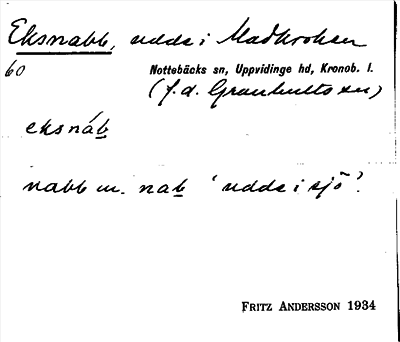 Eksnabb, udde i Madkroken
60 Nottebäcks sn, Uppvidinge hd, Kronob. l.
(f.d. Granhults sn)
eksnáb
nabb m. nab 'udde i sjö'.
FRITZ ANDERSSON 1934